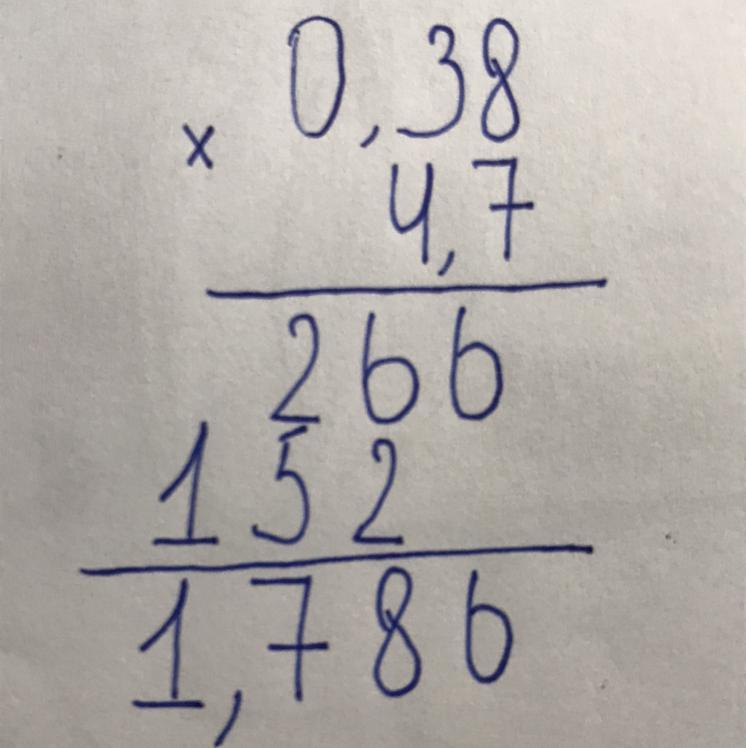 0,38
× 4,7
266
152
1,786